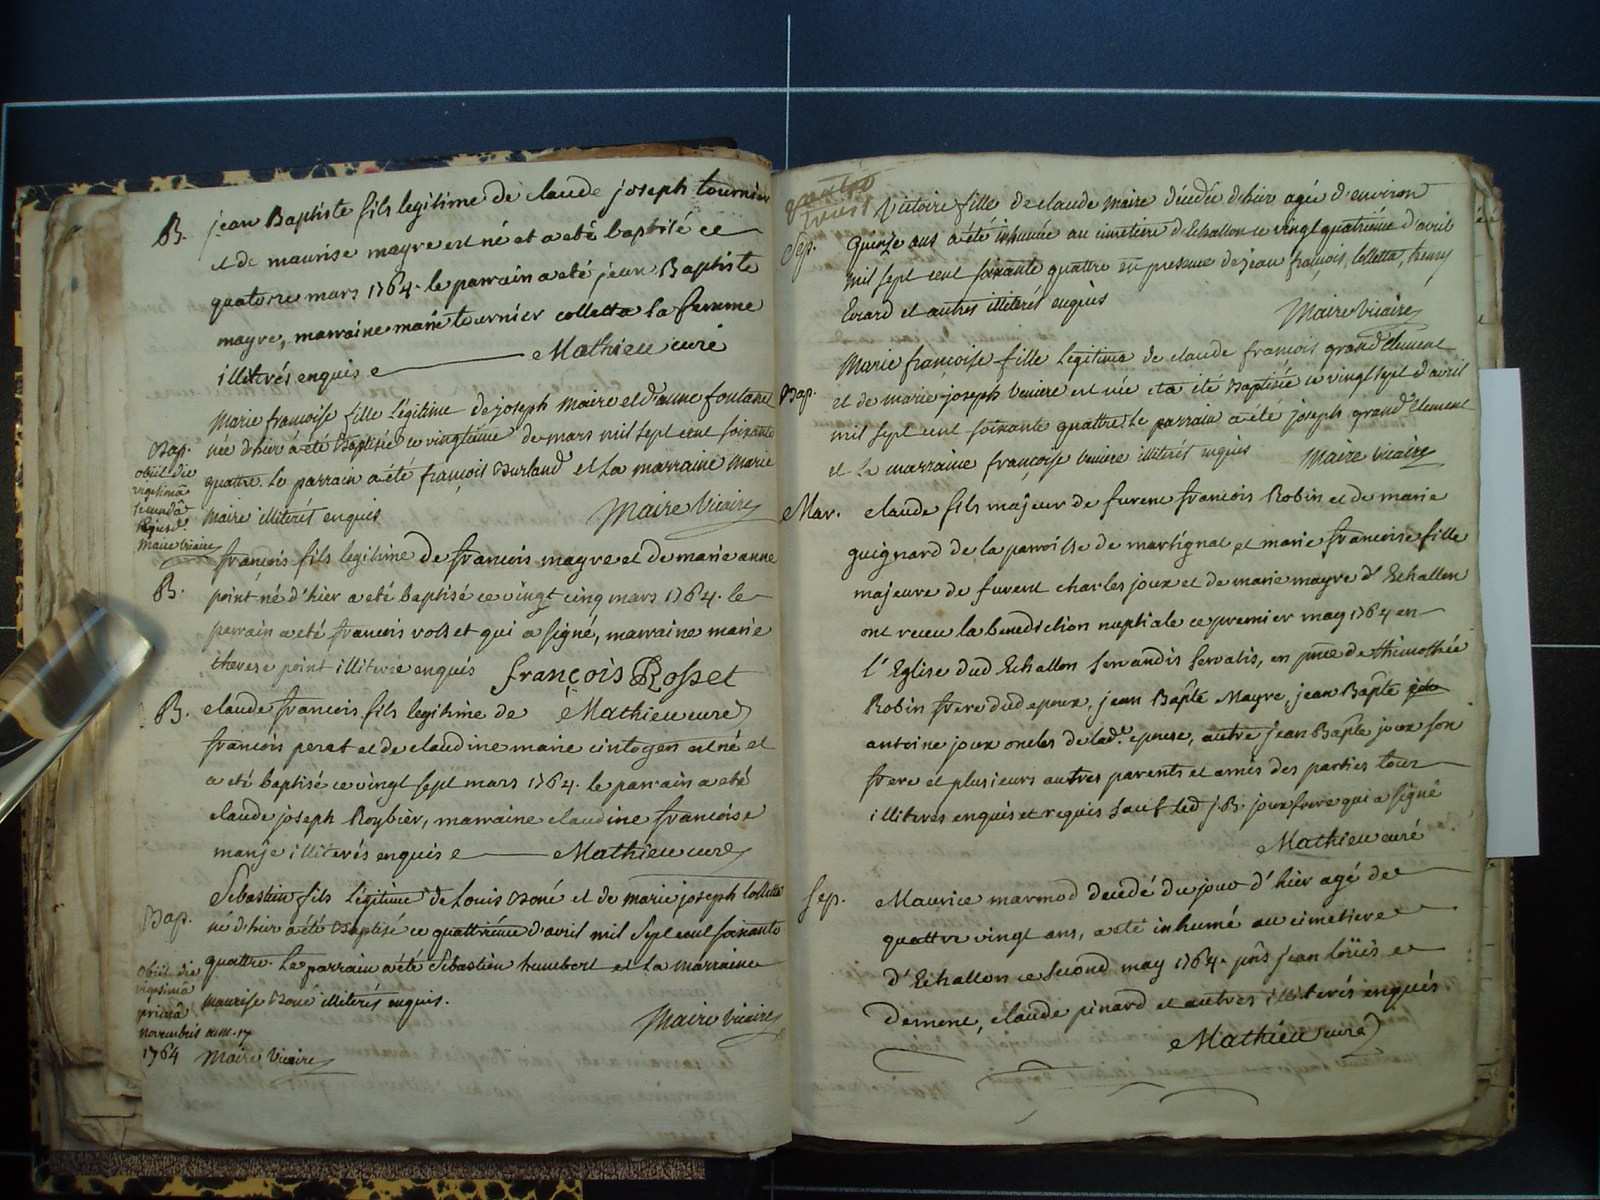 B. jean Baptiste fils legitime de claude joseph tournier
et de maurise mayre est né et a eté baptisé ce
quatorze mars 1764. le parrain a eté jean Baptiste
mayre, marraine marie tournier colletta la femme
illiterés enquis e Mathieu curé
Marie françoise fille légitime de joseph Maire et d'anne fontanet
Bap. née d'hier a été Baptisée ce vingtième de mars mil sept cent soixante
obiit die
vigesimâ
secundâ
ejusd.
Maire Vicaire
quattre. Le parrain a été françois Burland et La marraine Marie
Maire illiterés enquis Maire Vicaire
françois fils legitime de francois mayre et de marie anne
B. point né d'hier a eté baptisé ce vingt cinq mars 1764. le
parrain a eté francois rosset qui a signé, marraine marie
therese point illiterée enquis françois Rosset
B. claude francois fils legitime de Mathieu curé
francois peret et de claudine marie cintogen est né et
a eté baptisé ce vingt sept mars 1764. le parrain a eté
claude joseph Roybier, marraine claudine francoise
manje illiterés enquis e Mathieu curé
Sébastien fils Légitime de Louis Boné et de marie joseph colletta
Bap. né d'hier a été Baptisé ce quattriéme d'avril mil sept cent soixante
quattre. Le parrain a été Sébastien humbert et La marraine
obiit die
vigesimâ
primâ
novembris anni
1764 Maire Vicaire
Maurise Boné illiterés enquis.
Maire vicaire
quatre
Victoire fille de claude Maire décédée d'hier agée d'environ
Sep. quinze ans a été inhumée au cimetière d'Echallon ce vingt quatriéme d'avril
mil sept cent soixante quattre en presence de jean françois colletta, henry
Evrard et autres illiterés enquis
Maire Vicaire
Marie françoise fille Légitime de claude françois grand clement
Bap. et de marie joseph beniere est née et a été Baptisée ce vingt sept d'avril
mil sept cent soixante quattre. Le parrain a été joseph grand clement
et La marraine françoise beniere illiterés enquis Maire vicaire
Mar. claude fils majeur de furent francois Robin et de marie
guignard de la parroisse de martignat et marie francoise fille
majeure de furent charles joux et de marie mayre d'Echallon
ont receu la benediction nuptiale ce premier may 1764 en
l'Eglise dud Echallon servandis servatis, en pnce de thimothée
Robin frere dud epoux, jean Bapte Mayre, jean Bapte
antoine joux oncles de lade epouse, autre jean Bapte joux son
frere et plusieurs autres parents et amis des parties tous
illiterés enquis et requis sauf led j.B. joux frere qui a signé
Mathieu curé
Sep. Maurice marmod decedé du jour d'hier agé de
quattre vingt ans, a été inhumé au cimetiere
d'Echallon ce second may 1764. pns jean loüis e
dement, claude pinard et autres illiterés enquis
Mathieu curé